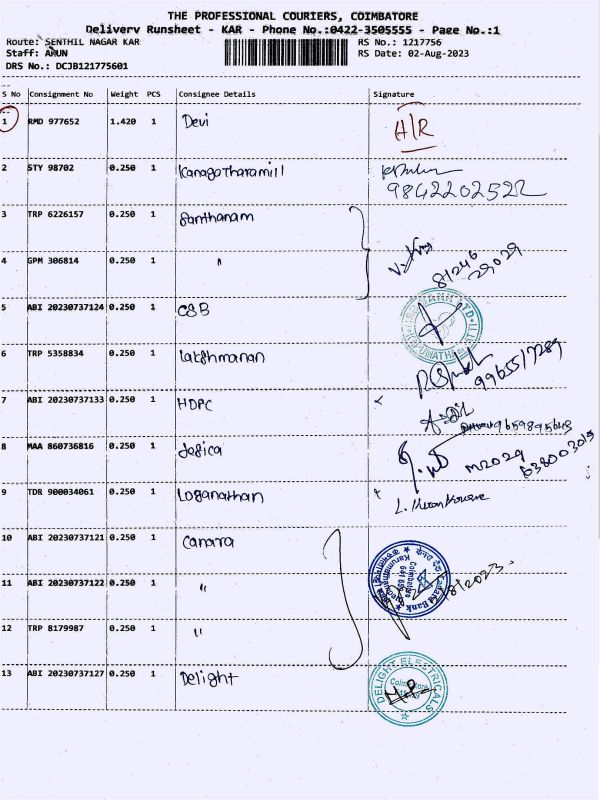 THE PROFESSIONAL COURIERS, COIMBATORE
Delivery Runsheet - KAR - Phone No.:0422-3505555 - Page No.:1
Route: SENTHIL NAGAR KAR RS No.: 1217756
Staff: ARUN RS Date: 02-Aug-2023
DRS No.: DCJB121775601
S No Consignment No Weight PCS Consignee Details Signature
1 RMD 977652 1.420 1 Devi A/R
2 STY 98702 0.250 1 Kanagatharamill
9842202522
3 TRP 6226157 0.250 1 Santhanam
4 GPM 306814 0.250 1 "
81246
29029
5 ABI 20230737124 0.250 1 CSB
6 TRP 5358834 0.250 1 Lakshmanan
9965517289
7 ABI 20230737133 0.250 1 HDFC
8 MAA 860736816 0.250 1 Jesica
9 TDR 900034061 0.250 1 Loganathan
10 ABI 20230737121 0.250 1 Canara
11 ABI 20230737122 0.250 1 "
Canara Bank
Coimbatore
8/2023
12 TRP 8179987 0.250 1 "
13 ABI 20230737127 0.250 1 Delight
DELIGHT ELECTRICALS
Coimbatore